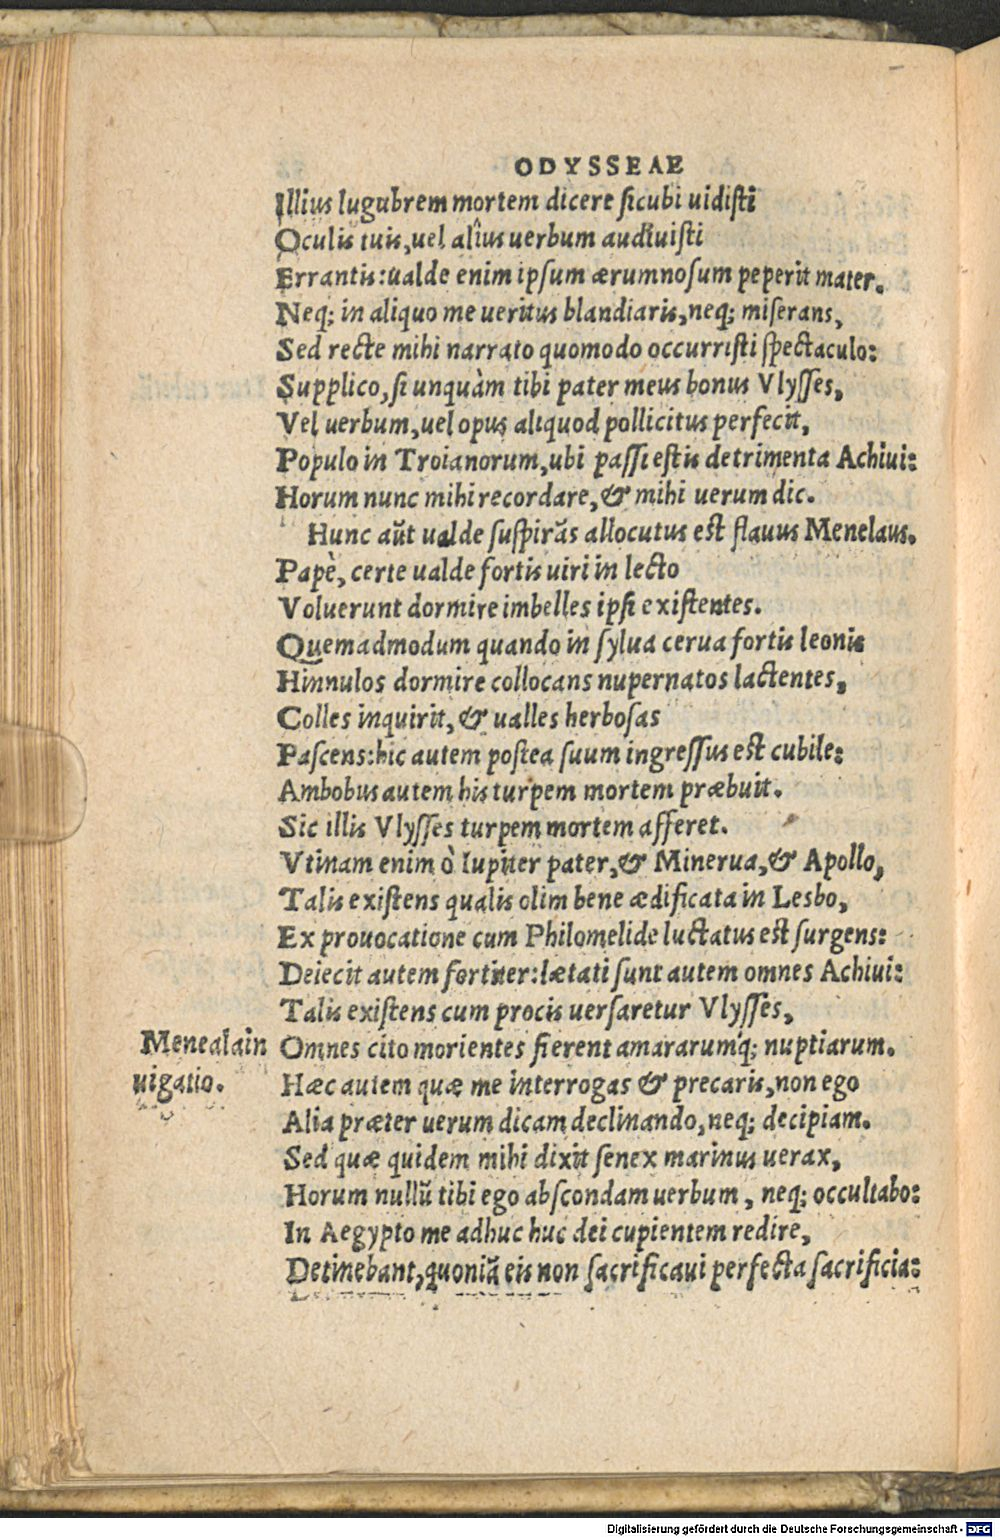 ODYSSEAE
Illius lugubrem mortem dicere sicubi uidisti
Oculis tuis, uel alîus uerbum audiuisti
Errantis: ualde enim ipsum ærumnosum peperit mater.
Neq; in aliquo me ueritus blandiaris, neq; miserans,
Sed recte mihi narrato quomodo occurristi spectaculo:
Supplico, si unquàm tibi pater meus bonus Vlysses,
Vel uerbum, uel opus aliquod pollicitus perfecit,
Populo in Troianorum, ubi passi estis detrimenta Achiui:
Horum nunc mihi recordare, & mihi uerum dic.
Hunc aūt ualde suspirās allocutus est flauus Menelaus.
Papè, certe ualde fortis uiri in lecto
Voluerunt dormire imbelles ipsi existentes.
Quemadmodum quando in sylua cerua fortis leonis
Hinnulos dormire collocans nupernatos lactentes,
Colles inquirit, & ualles herbosas
Pascens: hic autem postea suum ingressus est cubile:
Ambobus autem his turpem mortem præbuit.
Sic illis Vlysses turpem mortem afferet.
Vtinam enim ò Iupiter pater, & Minerua, & Apollo,
Talis existens qualis olim bene ædificata in Lesbo,
Ex prouocatione cum Philomelide luctatus est surgens:
Deiecit autem fortiter: lætati sunt autem omnes Achiui:
Talis existens cum procis uersaretur Vlysses,
Menealai n Omnes cito morientes fierent amararumq́; nuptiarum.
uigatio. Hæc autem quæ me interrogas & precaris, non ego
Alia præter uerum dicam declinando, neq; decipiam.
Sed quæ quidem mihi dixit senex marinus uerax,
Horum nullū tibi ego abscondam uerbum, neq; occultabo:
In Aegypto me adhuc huc dei cupientem redire,
Detinebant, quoniā eis non sacrificaui perfecta sacrificia:
Digitalisierung gefördert durch die Deutsche Forschungsgemeinschaft - DFG